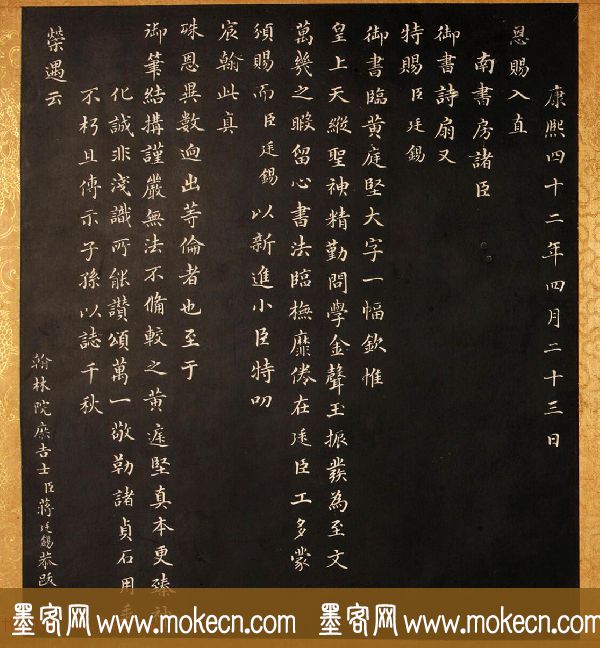 康熙四十二年四月二十三日
恩賜入直
南書房諸臣
御書詩扇又
特賜臣廷錫
御書臨黄庭堅大字一幅欽惟
皇上天縱聖神精勤問學金聲玉振發為至文
萬幾之暇留心書法臨橅靡倦在廷臣工多蒙
頒賜而臣廷錫以新進小臣特叨
宸翰此真
殊恩異數迥出等倫者也至于
御筆結搆謹嚴無法不備較之黄庭堅真本更臻神
化誠非淺識所能讚頌萬一敬勒諸貞石用垂
不朽且傳示子孫以誌千秋
榮遇云
翰林院庶吉士臣蔣廷錫恭跋
墨客网 www.mokecn.com 墨客网 www.mokecn.com